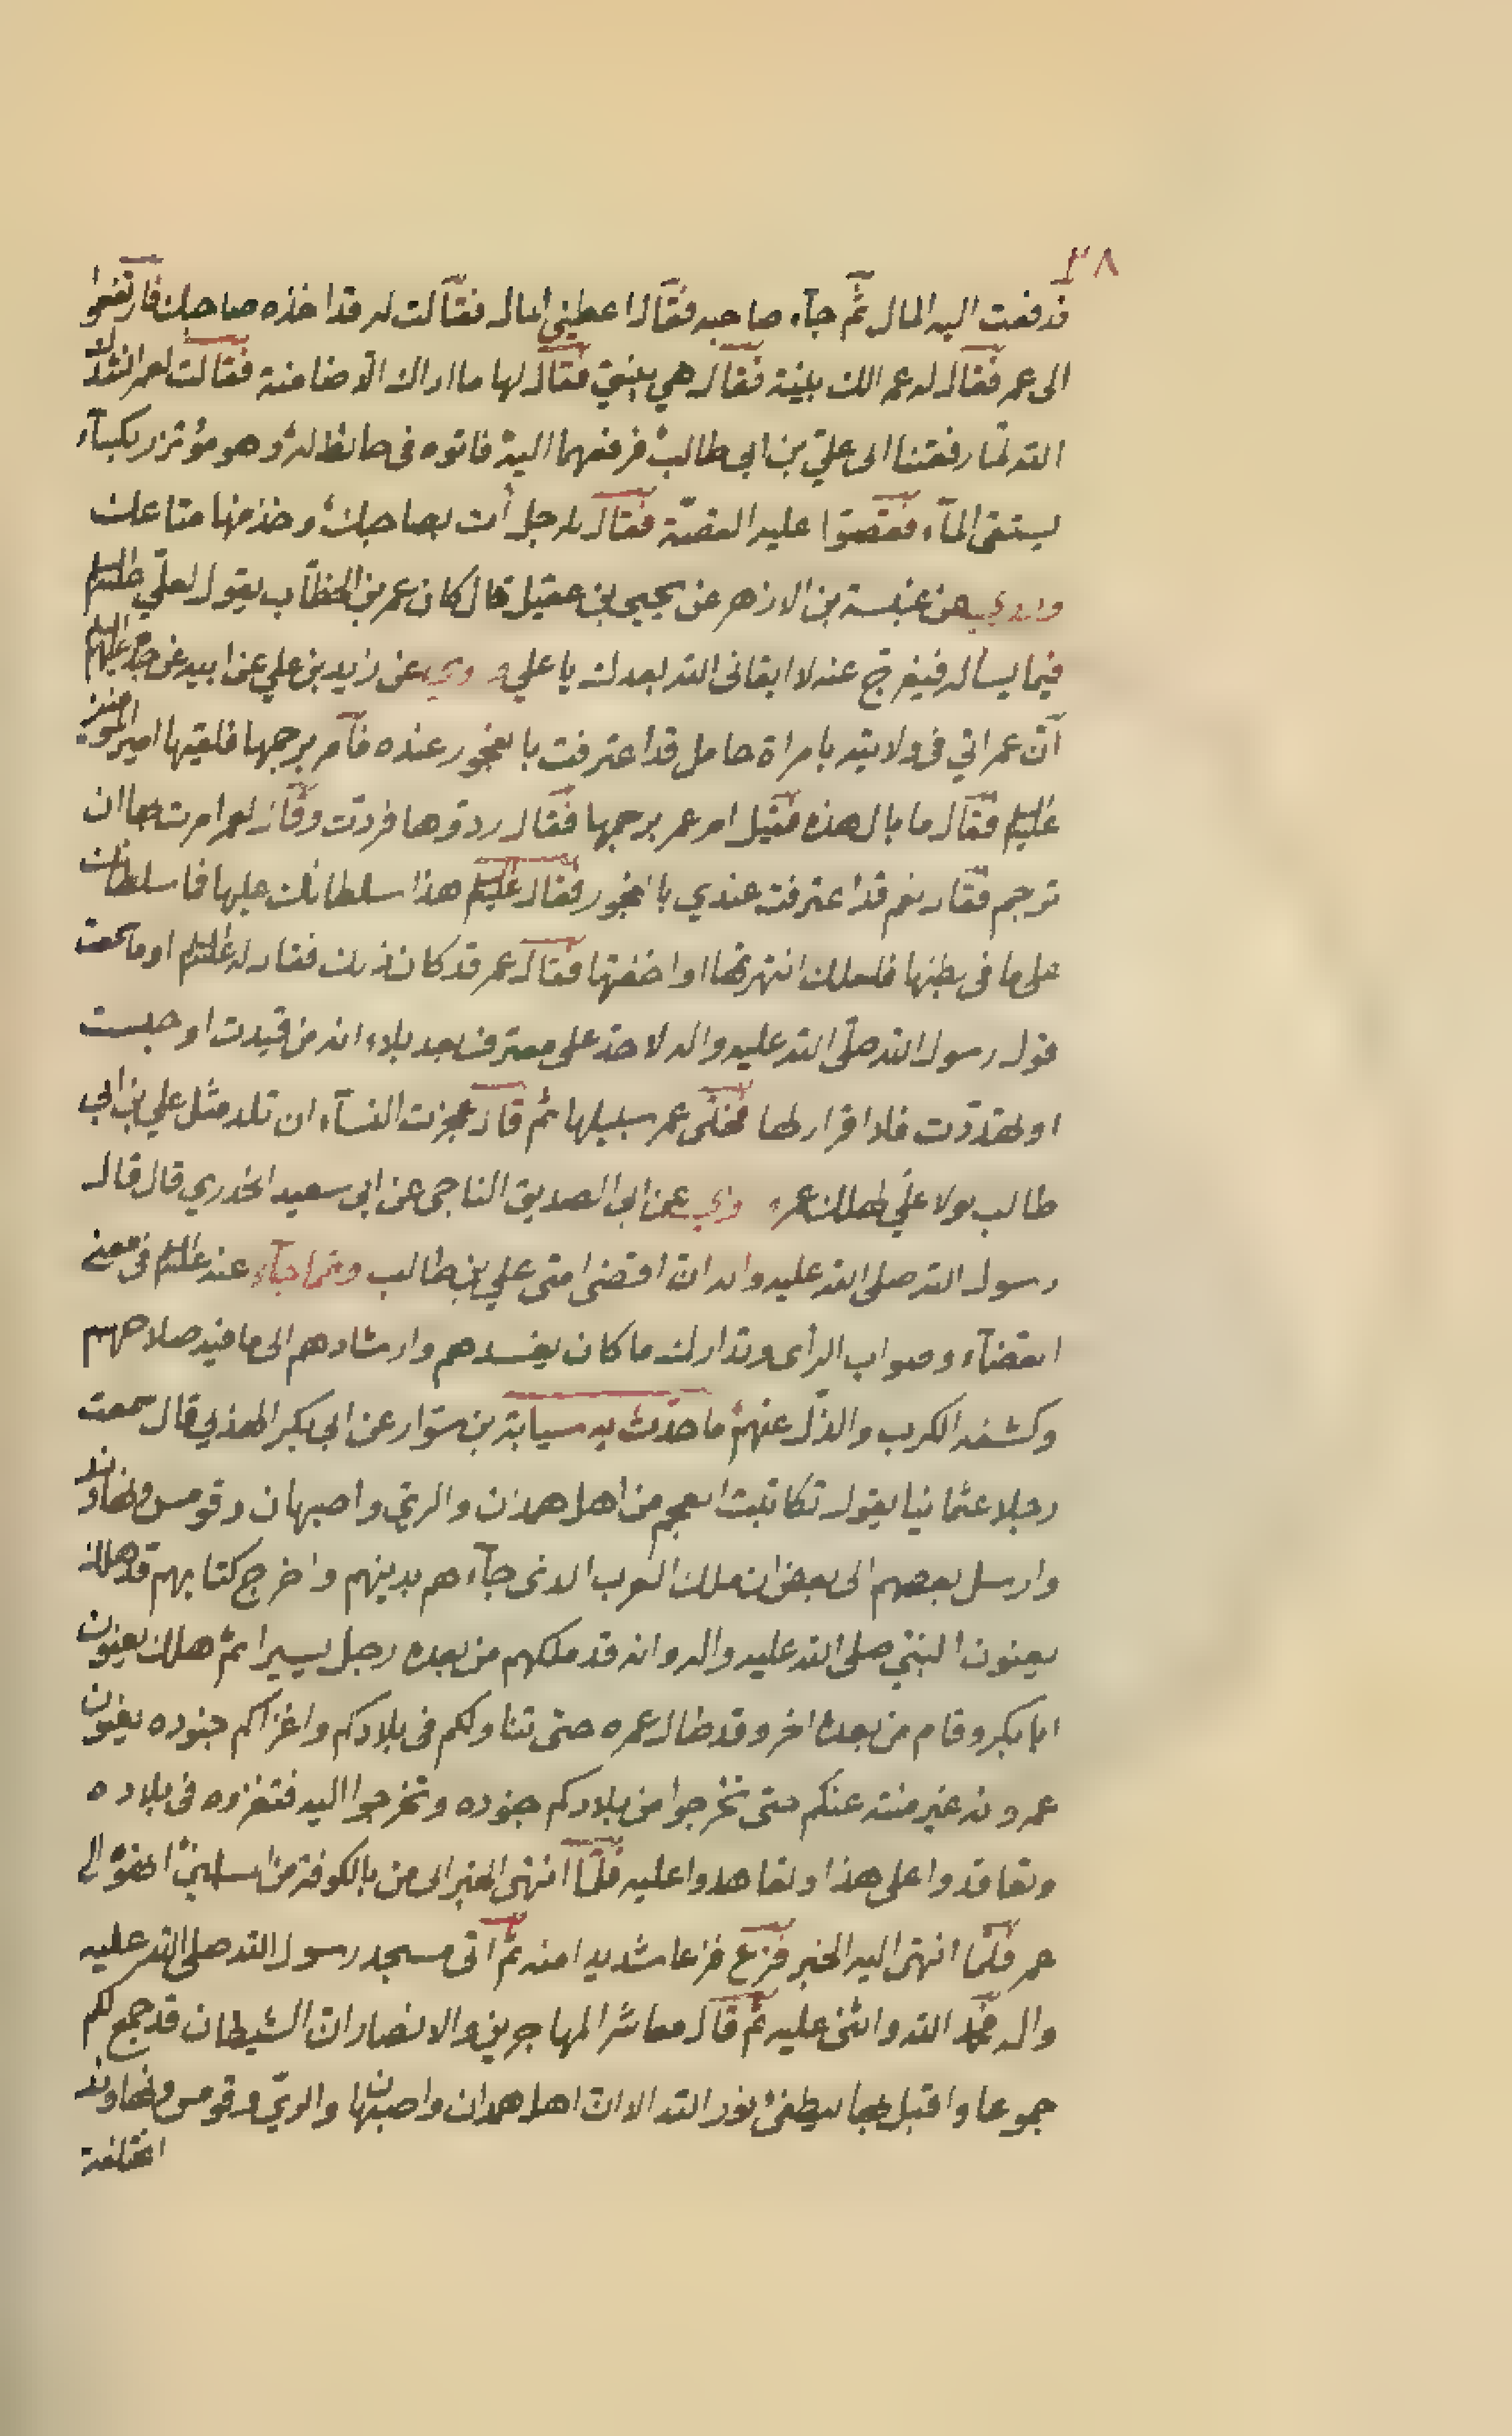 ٣٨
فدفعت اليه المال ثم جآء صاحبه فقال اعطينى المال فقالت له قد اخذه صاحبك فارتفعوا
الى عمر فقال له عمر الك بينة فقال هي بينتي فقال لها ما اراك الا ضامنة فقالت لعمر انشدك
الله لمّا رفعتنا الى علي بن ابى طالب فرفعهما اليه فاتوه فى حائط له وهو مؤتزر بكسآء
يستقى المآء فقصّوا عليه القصّة فقال للرجل أت بصاحبك وخذ منها متاعك
وروي عن عنبسة بن الازهر عن يحيى بن عقيل قال كان عمر بن الخطاب يقول لعلي عليه السلم
فيما يساله فيفرج عنه لا ابقانى الله بعدك يا علي وروي عن زيد بن علي عن ابيه عن جده عليهم السلم
انّ عمر اتي فى ولايته بامراة حامل قد اعترفت بالفجور عنده فامر برجمها فلقيها امير المؤمنين
عليه السلم فقال ما بال هذه فقيل امر عمر برجمها فقال ردوها فردّت وقال لعمر امرت بها ان
ترجم فقال نعم قد اعترفت عندي بالفجور فقال عليه السلم هذا سلطانك عليها فما سلطانك
على ما فى بطنها فلعلك انتهرتها او اخفتها فقال عمر قد كان ذلك فقال له عليه السلم اوما سمعت
قول رسول الله صلّى الله عليه واله لا حدّ على معترف بعد بلاء انه من قيدت او حبست
او تهدّدت فلا اقرار لها فخلّى عمر سبيلها ثم قال عجزت النسآء ان تلد مثل علي بن ابى
طالب لولا علي لهلك عمر وروي عن ابى الصديق الناجى عن ابى سعيد الخدري قال قال
رسول الله صلى الله عليه واله انّ اقضى امتى علي بن طالب وممّا جآء عنه عليه السلم فى معنى
القضآء وصواب الرأى وتدارك ما كان يفسدهم وارشادهم الى ما فيه صلاحهم
وكشفه الكرب والذلّ عنهم ما حدّث به سيابة بن سوّار عن ابى بكر الهذلي قال سمعت
رجلا عثمانيا يقول تكاتبت العجم من اهل همذان والريّ واصبهان وقومس ونهاوند
وارسل بعضهم الى بعض ان ملك العرب الذى جآءهم بدينهم واخرج كتابهم قد هلك
يعنون النبيّ صلى الله عليه واله وانه قد ملكهم من بعده رجل يسيرا ثم هلك يعنون
ابا بكر وقام من بعده اخر وقد طال عمره حتى تناولكم فى بلادكم واغزاكم جنوده يعنون
عمر وانه غير منته عنكم حتى تخرجوا من بلادكم جنوده وتخرجوا اليه فتغزوه فى بلاده
وتعاقدوا على هذا وتعاهدوا عليه فلمّا انتهى الخبر الى من بالكوفة من المسلمين انهوه الى
عمر فلمّا انتهى اليه الخبر فزع فزعا شديدا منه ثم اتى مسجد رسول الله صلى الله عليه
واله فحمد الله واثنى عليه ثم قال معاشر المهاجرين والانصار انّ الشيطان قد جمع لكم
جموعا واقبل بها ليطفئ نور الله الا انّ اهل همدان واصبهان والريّ وقومس ونهاوند